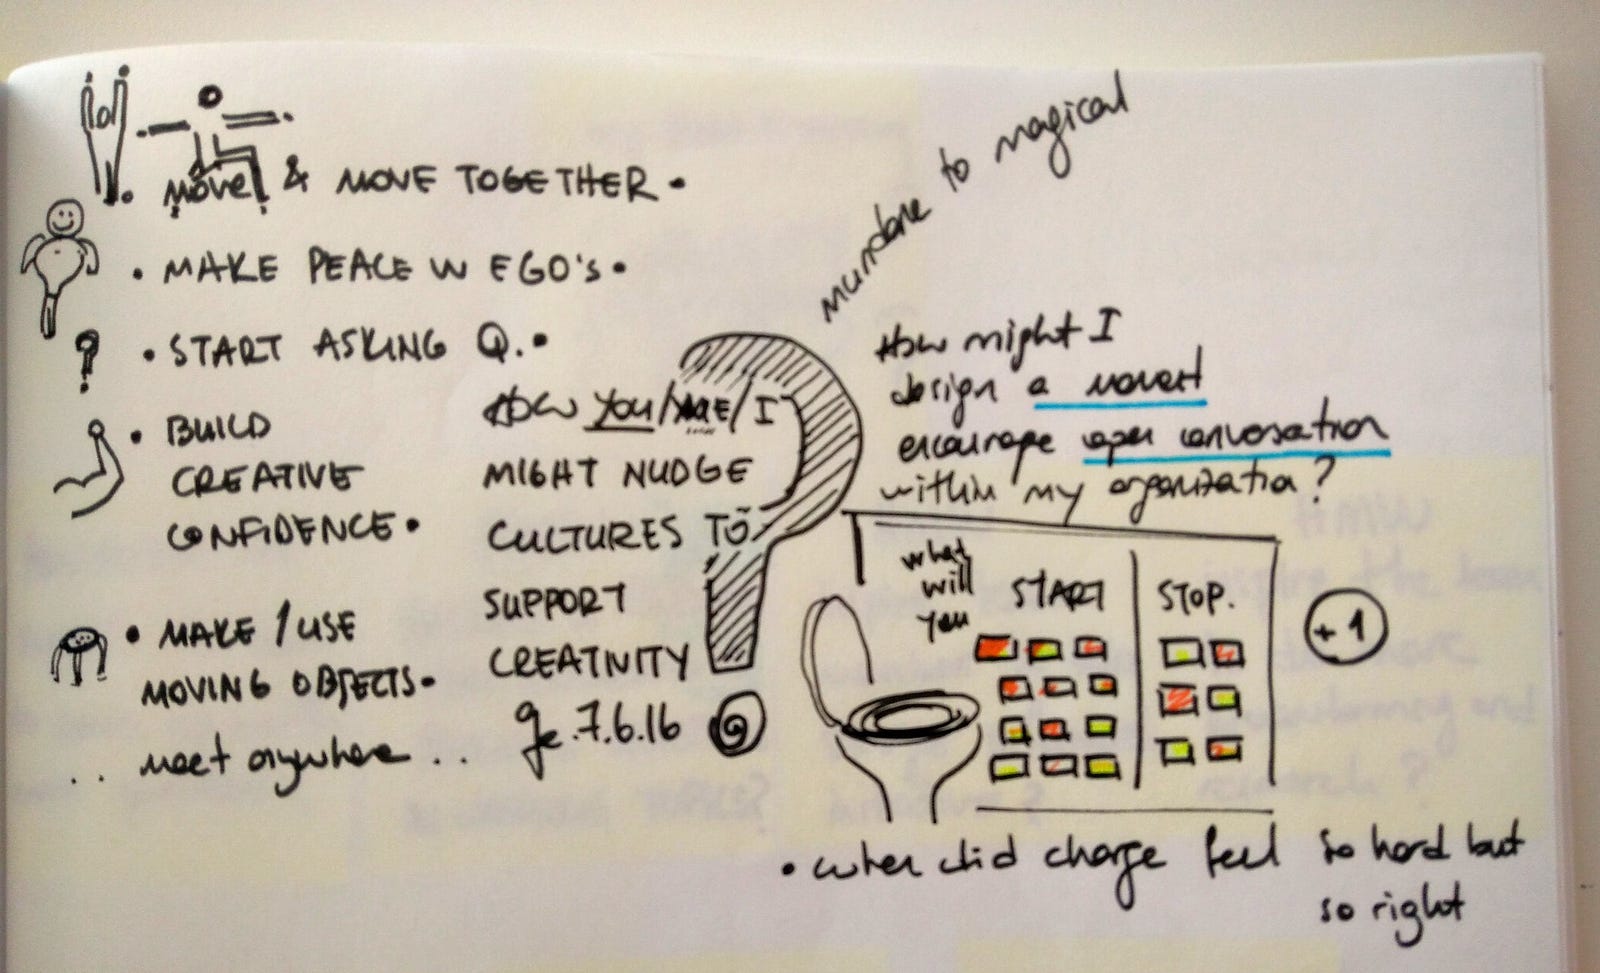 MOVE & MOVE TOGETHER.
• MAKE PEACE W EGO'S •
?
• START ASKING Q. •
• BUILD
CREATIVE
CONFIDENCE •
• MAKE / USE
MOVING OBJECTS •
.. meet anywhere ..
HOW YOU/WE/I
MIGHT NUDGE
CULTURES TO
SUPPORT
CREATIVITY
?
7.6.16
mundane to magical
How might I
design a
encourage open conversation
within my organization?
what
will
you
START
STOP.
+1
• when did change feel so hard but
so right